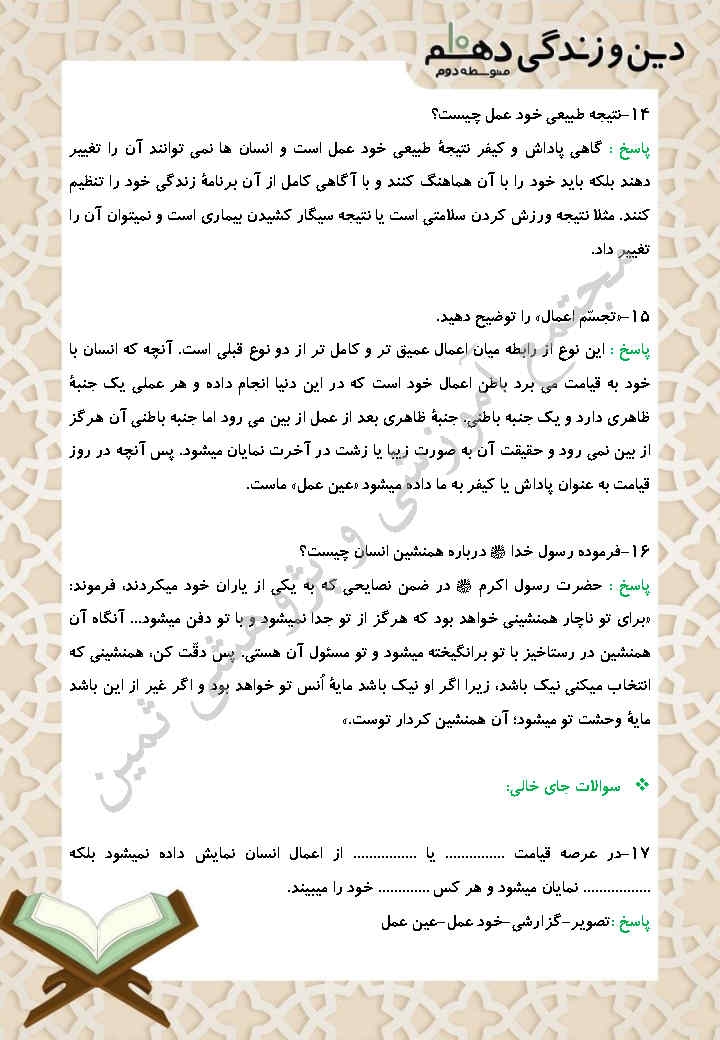 دین و زندگی دهم
متوسطه دوم
۱۴-نتیجه طبیعی خود عمل چیست؟
پاسخ : گاهی پاداش و کیفر نتیجهٔ طبیعی خود عمل است و انسان ها نمی توانند آن را تغییر
دهند بلکه باید خود را با آن هماهنگ کنند و با آگاهی کامل از آن برنامهٔ زندگی خود را تنظیم
کنند. مثلا نتیجه ورزش کردن سلامتی است یا نتیجه سیگار کشیدن بیماری است و نمیتوان آن را
تغییر داد.
۱۵-«تجسّم اعمال» را توضیح دهید.
پاسخ : این نوع از رابطه میان اعمال عمیق تر و کامل تر از دو نوع قبلی است. آنچه که انسان با
خود به قیامت می برد باطن اعمال خود است که در این دنیا انجام داده و هر عملی یک جنبهٔ
ظاهری دارد و یک جنبه باطنی. جنبهٔ ظاهری بعد از عمل از بین می رود اما جنبه باطنی آن هرگز
از بین نمی رود و حقیقت آن به صورت زیبا یا زشت در آخرت نمایان میشود. پس آنچه در روز
قیامت به عنوان پاداش یا کیفر به ما داده میشود «عین عمل» ماست.
۱۶-فرموده رسول خدا ﷺ درباره همنشین انسان چیست؟
پاسخ : حضرت رسول اکرم ﷺ در ضمن نصایحی که به یکی از یاران خود میکردند، فرموند:
«برای تو ناچار همنشینی خواهد بود که هرگز از تو جدا نمیشود و با تو دفن میشود... آنگاه آن
همنشین در رستاخیز با تو برانگیخته میشود و تو مسئول آن هستی. پس دقّت کن، همنشینی که
انتخاب میکنی نیک باشد، زیرا اگر او نیک باشد مایهٔ اُنس تو خواهد بود و اگر غیر از این باشد
مایهٔ وحشت تو میشود؛ آن همنشین کردار توست.»
❖ سوالات جای خالی:
۱۷-در عرصه قیامت ............... یا ................ از اعمال انسان نمایش داده نمیشود بلکه
................. نمایان میشود و هر کس ............. خود را میبیند.
پاسخ :تصویر-گزارشی-خود عمل-عین عمل
مجتمع آموزشی و پژوهشی ثمین